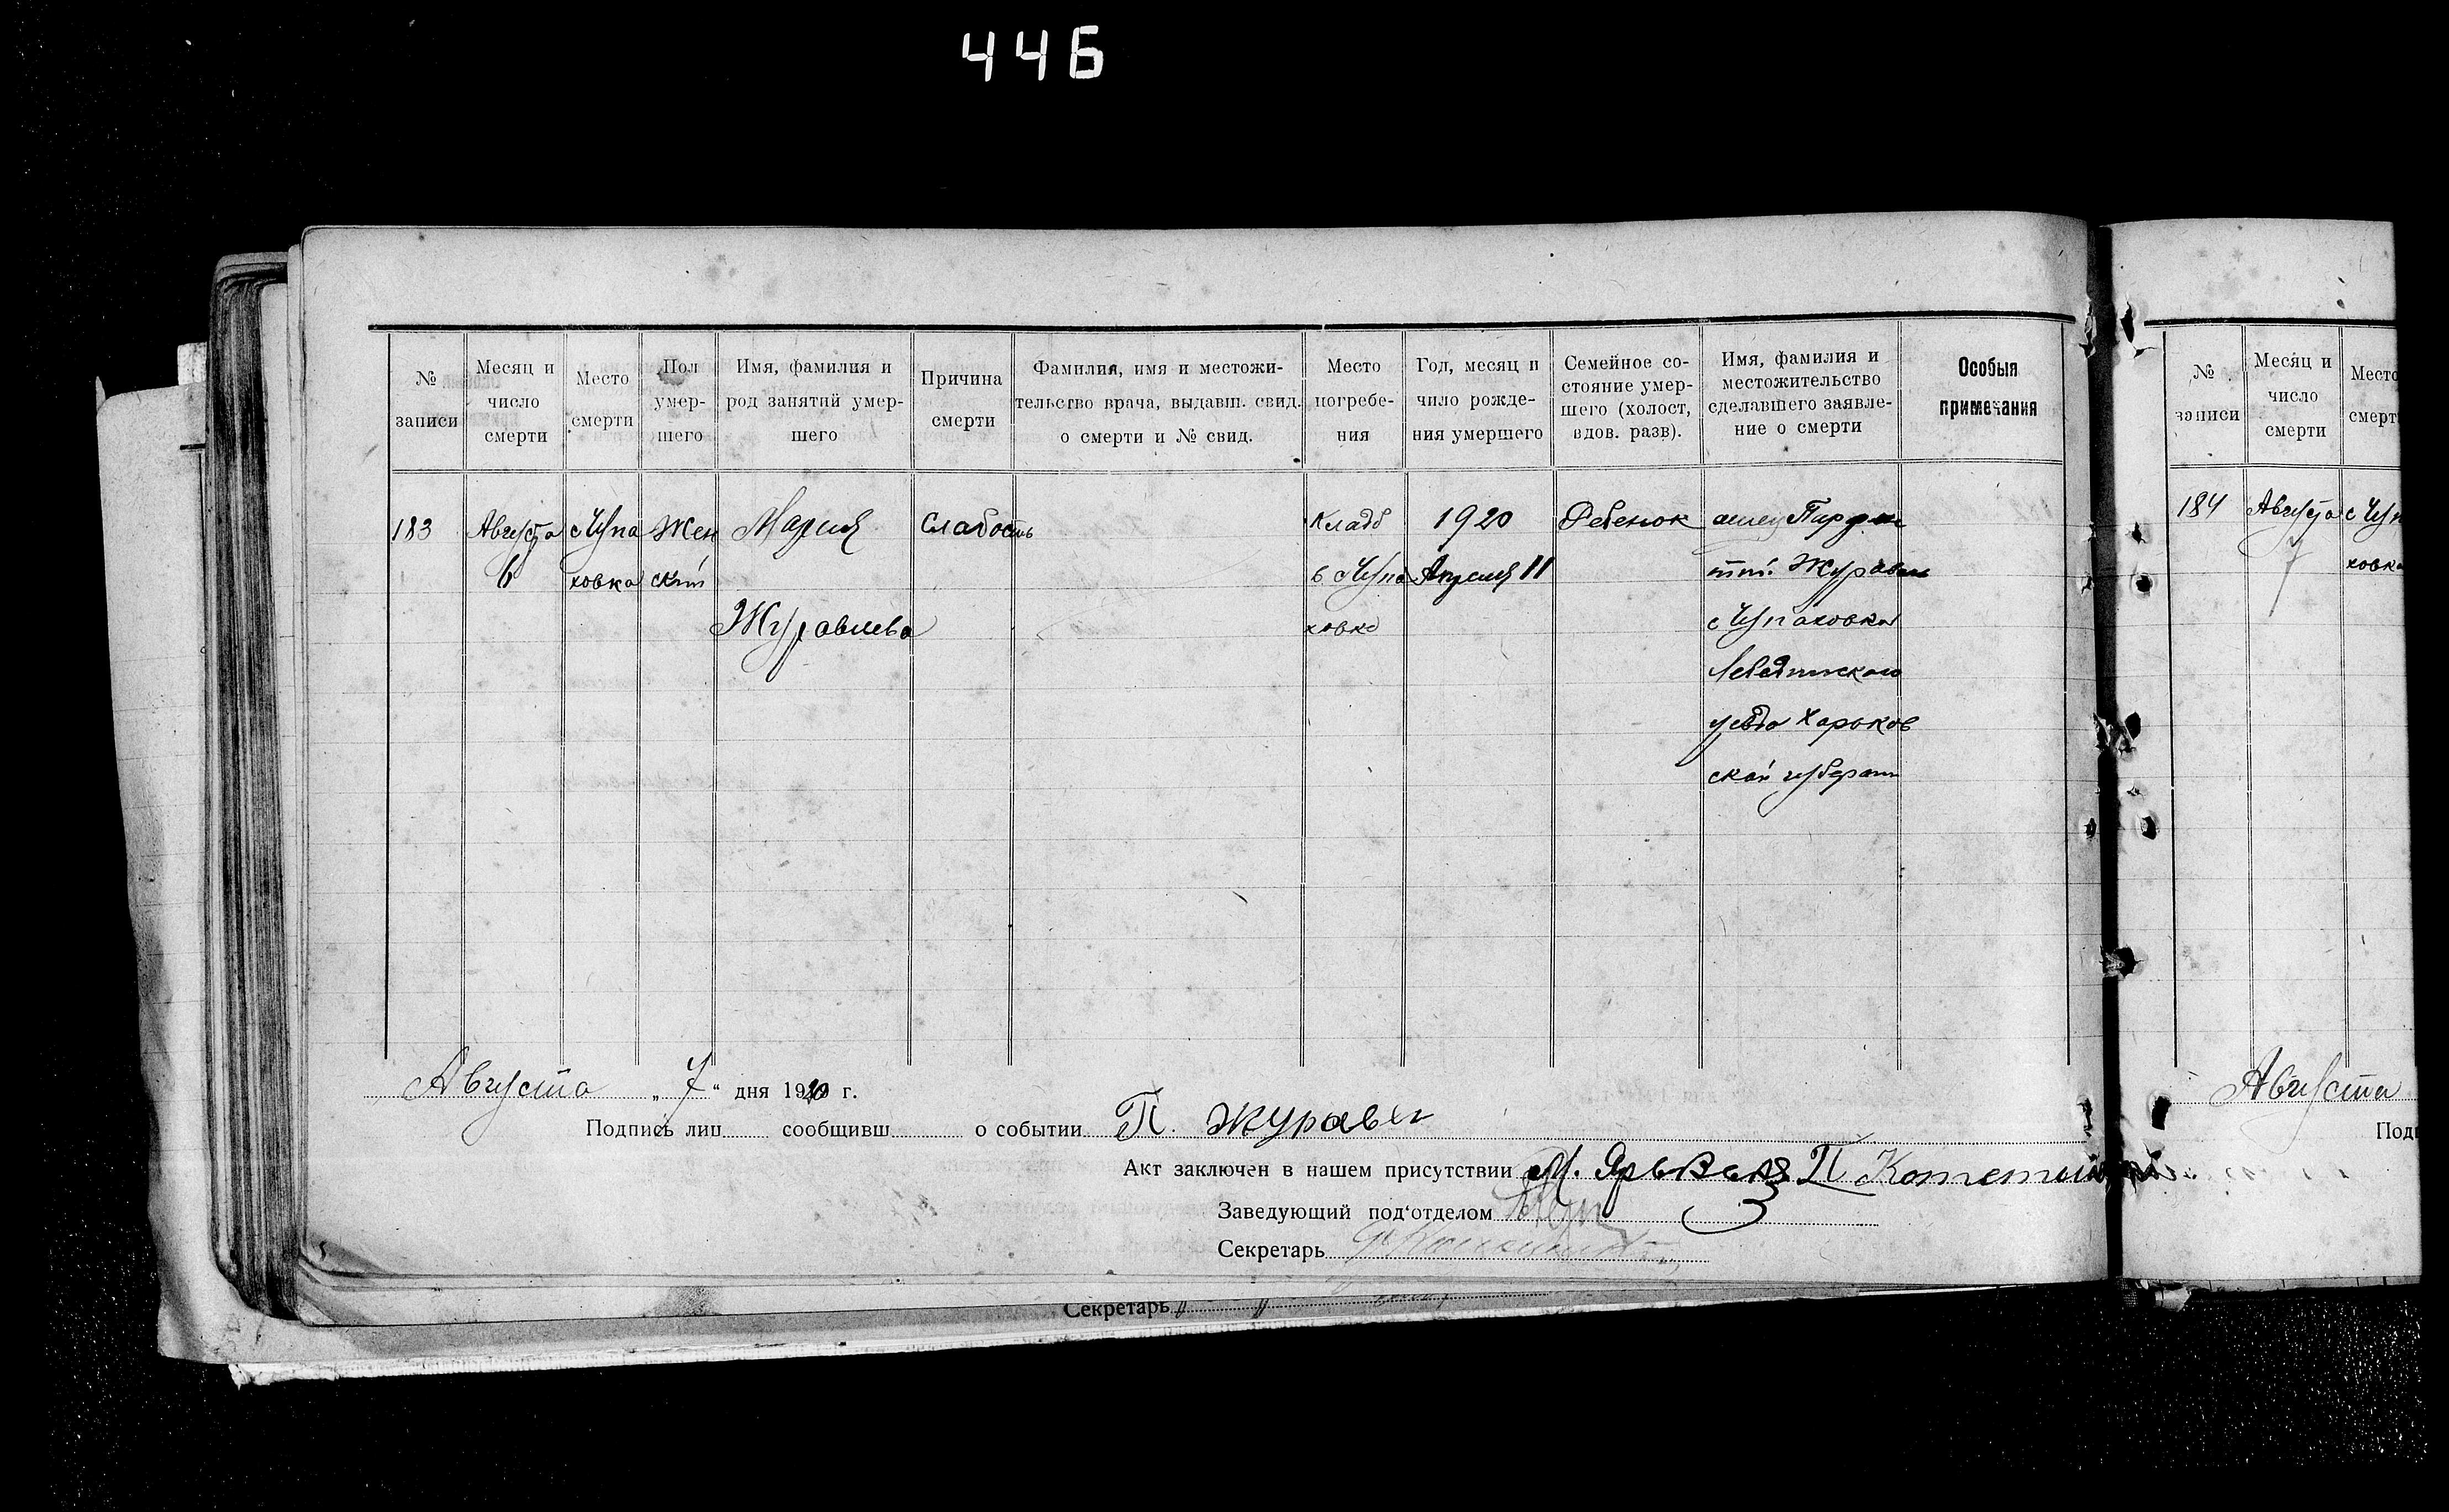 446
№ записи
Месяц и число смерти
Место смерти
Пол умершего
Имя, фамилия и род занятий умершего
Причина смерти
Фамилия, имя и местожительство врача, выдавш. свид. о смерти и № свид.
Место погребения
Год, месяц и чило рождения умершего
Семейное состояние умершего (холост, вдов. разв).
Имя, фамилия и местожительство сделавшего заявление о смерти
Особыя примечания
183
Августа
6
с Чупа
ховка
Жен
ский
Мария
Журавлева
Слабость
Кладб
в Чупа
ховке
1920
Апреля 11
Ребенок
отец
Журавель
с Чупаховка
Лебединского
уезда Харьков
ской губерни
Августа „ 7 “ дня 1920 г.
Подпись лиц сообщивш о событии П. Журавел
Акт заключен в нашем присутствии М.
Заведующий под‘отделом
Секретарь
Секретарь
№ записи
Месяц и число смерти
Место смерт
184
Августа
7
с Чуп
ховка
Августа
Подп